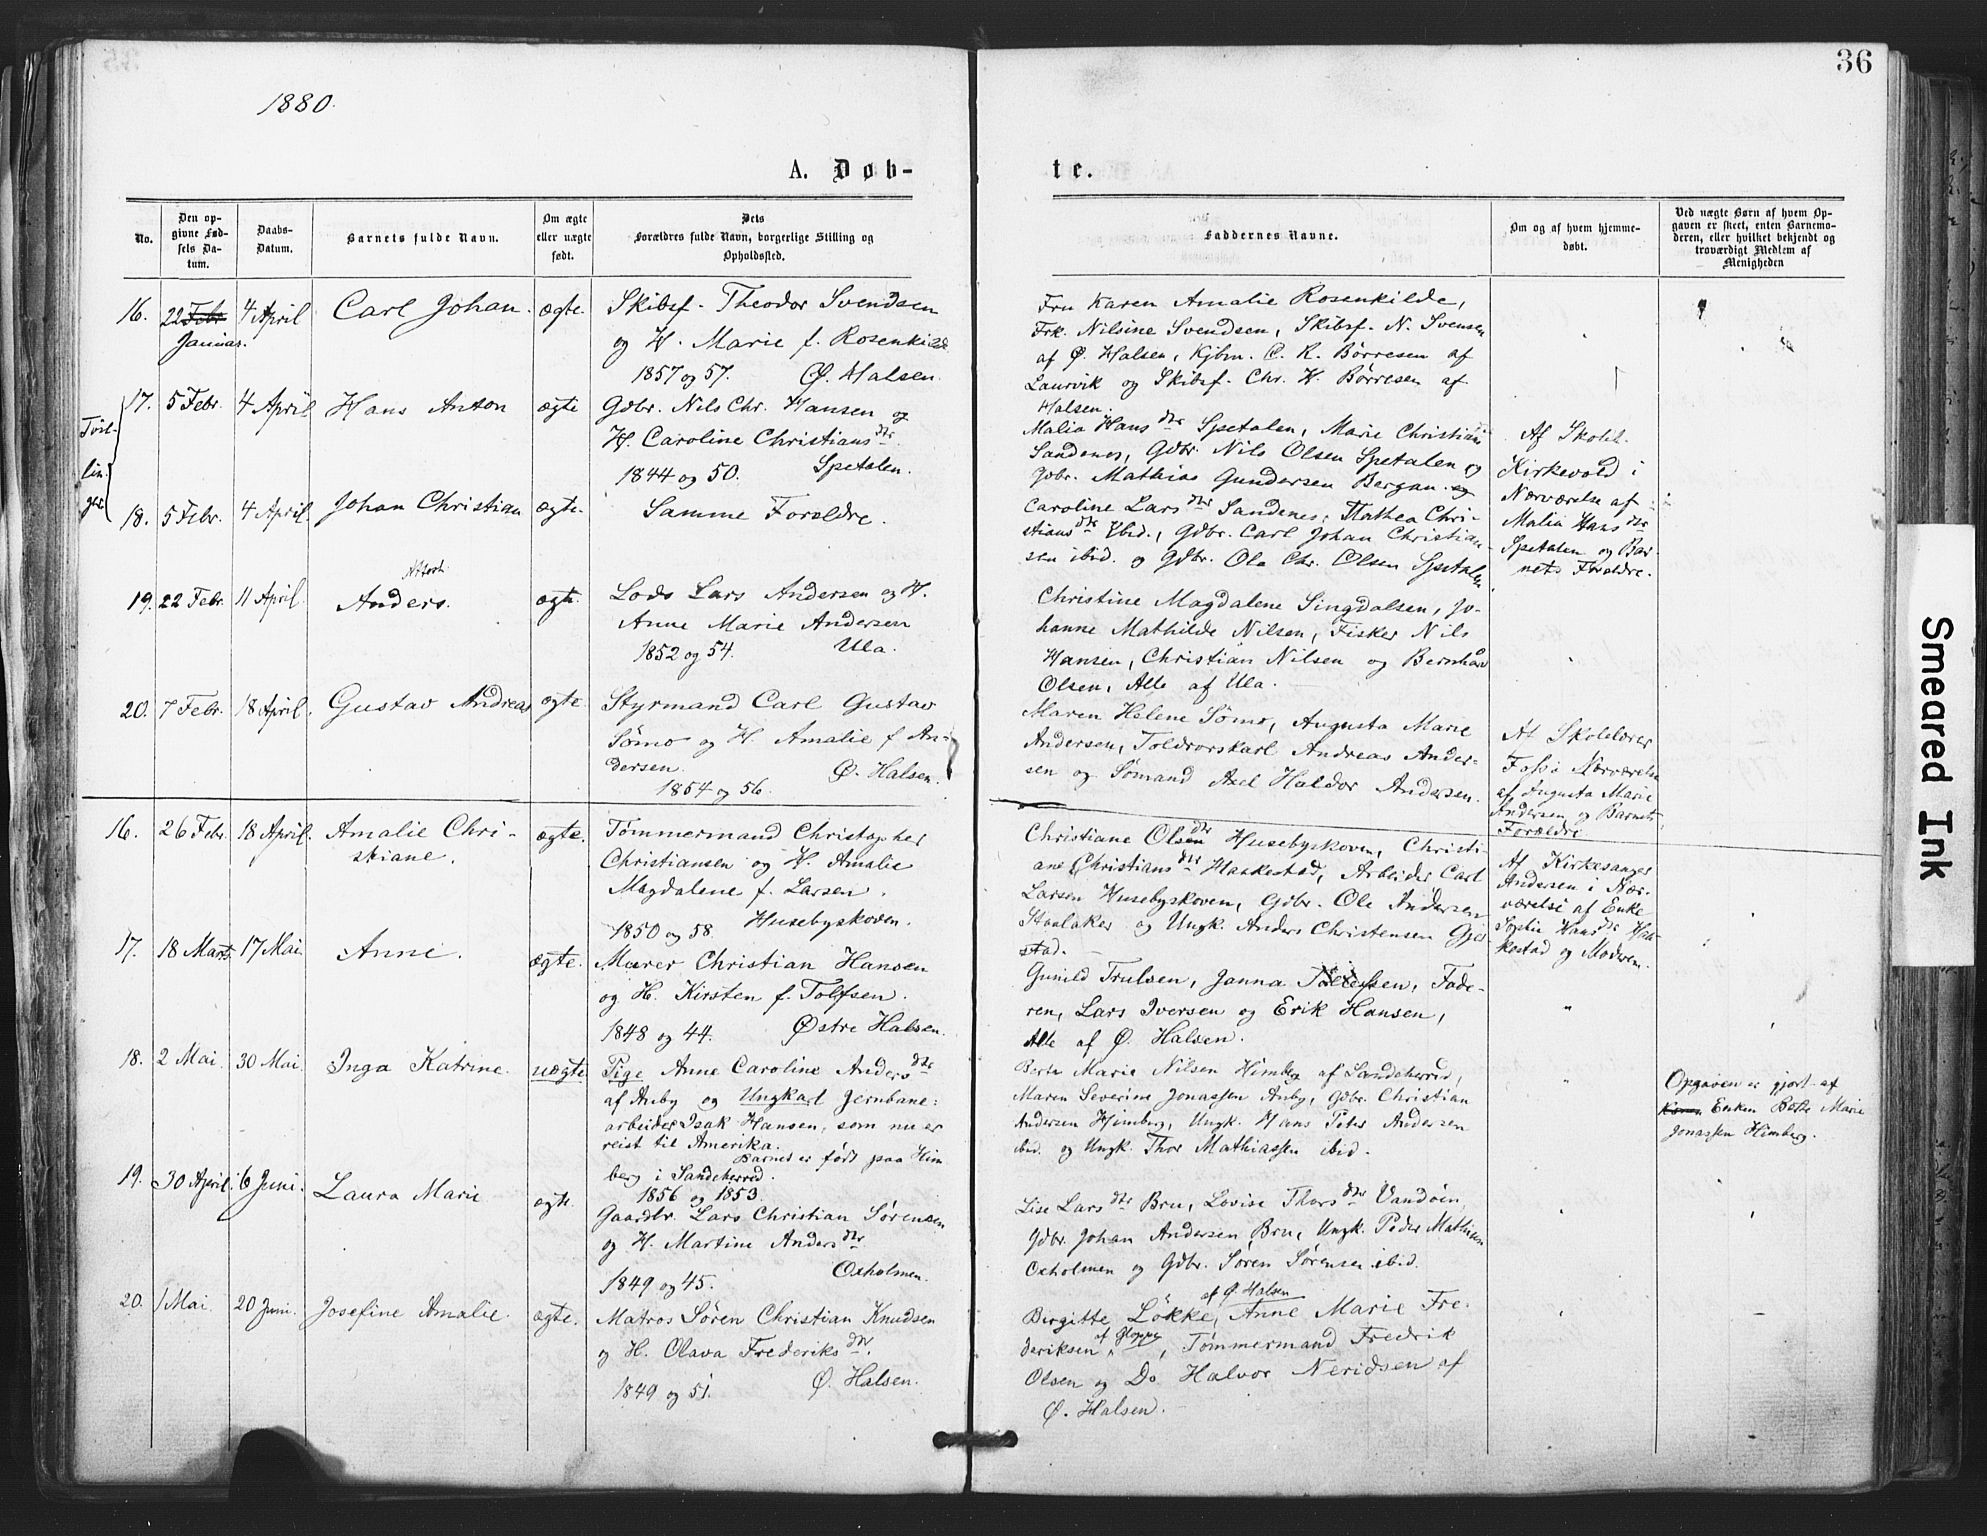 36
1880.
A. Døb-
te.
No.
Den op-
givne Fød-
sels Da-
tum.
Daabs-
Datum.
Barnets fulde Navn.
Om ægte
eller uægte
født.
Dets
Forældres fulde Navn, borgerlige Stilling og
Opholdssted.
Faddernes Navne.
Om og af hvem hjemme-
døbt.
Ved uægte Børn af hvem Op-
gaven er skeet, enten Barnemo-
deren, eller hvilket bekjendt og
troværdigt Medlem af
Menigheden
16. 22 Febr Januar. 4 April Carl Johan. ægte.
Skibsf. Theodor Svendsen
og H. Marie f. Rosenkilde
1857 og 57. Ø. Halsen.
Fru Karen Amalie Rosenkilde,
Frk. Nilsine Svendsen, Skibsf. N. Svensen
af Ø. Halsen, Kjbm. C. R. Børresen af
Laurvik og Skibsf. Chr. H. Børresen af
Halsen.
Tvil-
lin-
ger
17. 5 Febr. 4 April Hans Anton ægte
Gdbr. Nils Chr. Hansen og
H. Caroline Christiansdtr.
1844 og 50. Spetalen.
Malia Hansdtr Spetalen, Marie Christians
Sandenes, Gdbr. Nils Olsen Spetalen og
Gdbr. Mathias Gundersen Bergan. og
Af Skoll.
Kirkevold i
Nærværelse af
Malia Hansdtr
Spetalen og Bar-
nets Forældre.
18. 5 Febr. 4 April Johan Christian ægte.
Samme Forældre.
Caroline Larsdtr Sandenes, Mathea Chri-
stiansdtr Ibid., Gdbr. Carl Johan Christian-
sen ibid. og Gdbr. Ole Chr. Olsen Spetalen
19. 22 Febr. 11 April Anders. ægte.
Lods Lars Andersen og H.
Anne Marie Andersen
1852 og 54. Ula.
Christine Magdalene Singdalsen, Jo-
hanne Mathilde Nilsen, Fisker Nils
Hansen, Christian Nilsen og Bernhard
Olsen, Alle af Ula.
20. 7 Febr. 18 April. Gustav Andreas ægte
Styrmand Carl Gustav
Sømo og H. Amalie f. An-
dersen. Ø. Halsen.
1854 og 56.
Maren Helene Sømo, Augusta Marie
Andersen, Toldrorskarl Andreas Ander-
sen og Sømand Axel Haldor Andersen.
Af Skolelærer
Fossø Nærværelse
af Augusta Marie
Andersen og Barnets
Forældre
16. 26 Febr. 18 April. Amalie Chri-
stiane. ægte.
Tømmermand Christopher
Christiansen og H. Amalie
Magdalene f. Larsen.
1850 og 58. Husebyskoven.
Christiane Olsdtr Husebyskoven, Christi-
ane Christiansdtr Haakestad, Arbeider Carl
Larsen Husebyskoven, Gdbr. Ole Andersen
Staalaker og Ungk. Anders Christensen Gjer-
stad.
Af Kirkesanger
Andersen i Nær-
værelse af Enke
Sophie Hansdtr Haa-
kestad og Moderen.
17. 18 Marts. 17 Mai Anne. ægte.
Murer Christian Hansen
og H. Kirsten f. Tolfsen.
1848 og 44. Østre Halsen.
Gunild Trulsen, Janna Tollefsen, Fade-
ren, Lars Iversen og Erik Hansen,
Alle af Ø. Halsen.
18. 2 Mai 30 Mai. Inga Katrine. uægte
Pige Anne Caroline Andersdtr
af Auby og Ungkarl Jernbane-
arbeider Isak Hansen, som nu er
reist til Amerika.
Barnet er født paa Him
berg i Sandeherred.
1856 og 1853.
Berte Marie Nilsen Himberg af Sandeherred,
Maren Severine Jonassen Auby, Gdbr. Christian
Andersen Himberg, Ungk. Hans Peter Andersen
ibid. og Ungk. Thor Mathiassen ibid.
Opgaven er gjort af
Enken Berte Marie
Jonassen Himberg.
19. 30 April. 6 Juni. Laura Marie ægte.
Gaardbr. Lars Christian Sørensen
og H. Martine Andersdtr
1849 og 45. Oxholmen.
Lise Larsdtr Bru, Lovise Thorsdtr Vandøen,
Gdbr. Johan Andersen Bru, Ungk. Peder Mathisen
Oxholmen og Gdbr. Søren Sørensen ibid.
20. 1 Mai. 20 Juni. Josefine Amalie. ægte.
Matros Søren Christian Knudsen
og H. Olava Frederiksdtr.
1849 og 51. Ø. Halsen.
af Ø. Halsen
Birgitte Løkke, Anne Marie Fre-
deriksen af Gloppe, Tømmermand Fredrik
Olsen og Do. Halvor Neridsen af
Ø. Halsen.
Smeared Ink